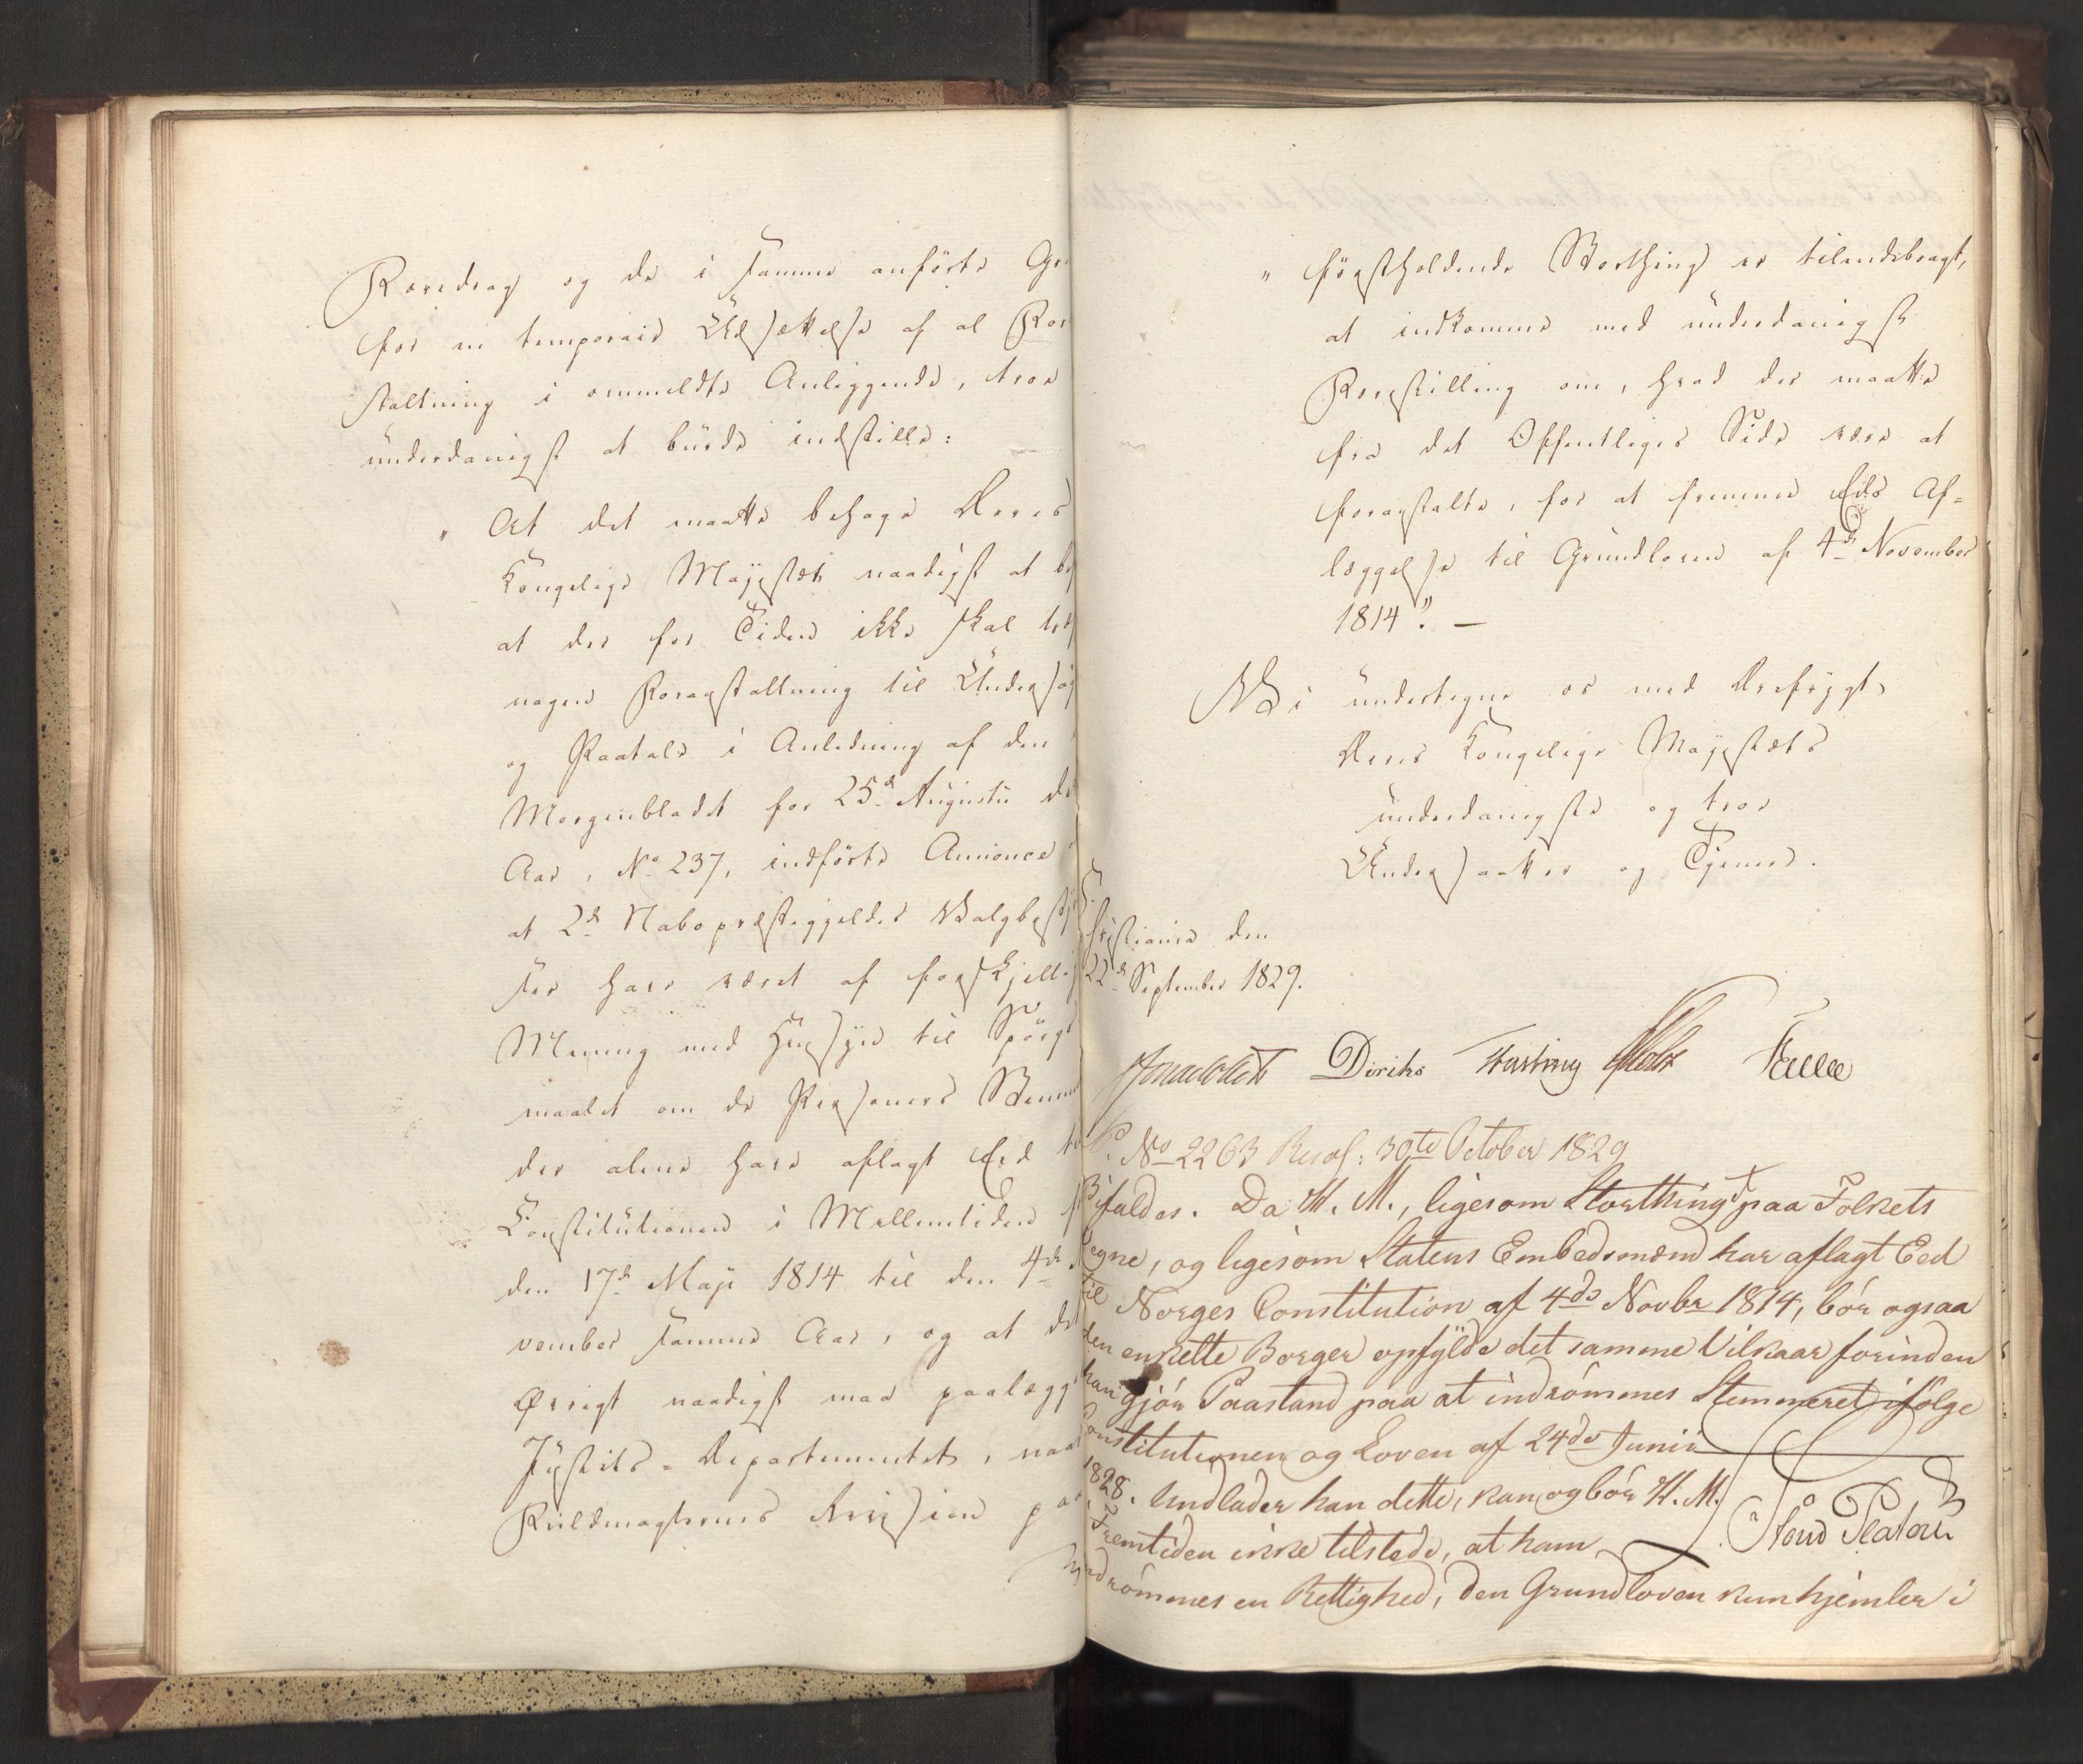 Foredrag og de i samme anførte Gr
for en temporair Udsættelse af al For
staltning i ommeldte Anliggende, troe
underdanigst at burde indstille:
" At det maatte behage Deres
Kongelige Majestæt naadigst at be
at der for Tiden ikke skal
nogen Foranstaltning til Undersøg
og Paatale i Anledning af den
Morgenbladet for 25de Augustii d
Aar, No 237, indførte Annonce
at 2de Nabopræstegjeldes Valgbesty
ser have været af forskjellig
Mening med Hensyn til Spørgs
maalet om de Personers Stemme
der alene have aflagt Eed
Constitutionen i Mellemtiden
den 17de Maji 1814 til den 4de
vember samme Aar, og at det
Øvrigt naadigst maa paalægg
Justits-Departementet, naar
Fuldmagternes Revision paa
" førstholdende Storthing er tilendebragt,
at indkomme med underdanigst
Forestilling om, hvad der maatte
fra det Offentliges Side være at
foranstalte, for at fremme Eeds Af-
læggelse til Grundloven af 4de November
1814". —
Vi undertegne os med Ærefrygt,
Deres Kongelige Majestæts
underdanigste og troe
Undersaatter og Tjenere.
Christiania den
22de September 1829.
Diriks Fasting Holst
No 2263 Resol: 30te October 1829
Bifaldes. Da H. M., ligesom Storthinget paa Folkets
Vegne, og ligesom Statens Embedsmænd har aflagt Eed
til Norges Constitution af 4de Novbr 1814, bör ogsaa
den enkelte Borger opfylde det samme Vilkaar forinden
han gjör Paastand paa at indrömmes Stemmeret ifölge
Constitutionen og Loven af 24de Junii
1828. Undlader han dette, kan og bör H. M.
i Fremtiden ikke tilstede, at ham
indrömmes en Rettighed, den Grundloven kun hjemler i